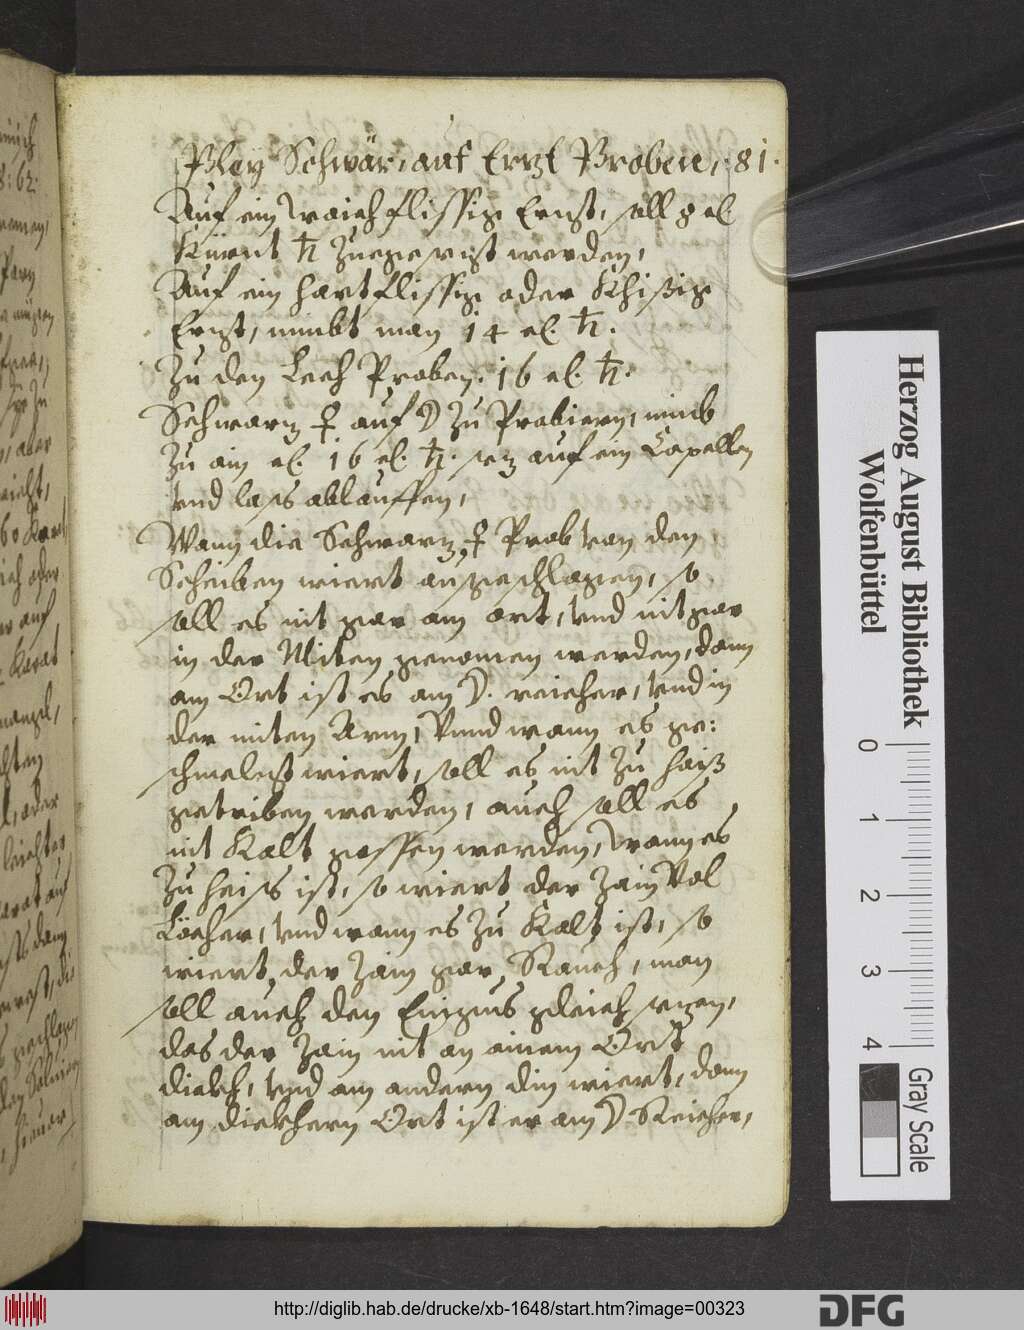 Bley Schwär, auf Ertzt Proben, 81.
Auf ein waich flissige Ernst, soll 8 el.
Kürnt ♄ Zuegesezt werden,
Auf ein hartflissige oder Khißige
Ernst, nimbt man 14 el. ♄.
Zu den Lech Proben. 16 el. ♄.
Schwarz ♀ auf ☽ Zu Probiern, nimb
Zu ain el. 16 el. ♄. sez auf ein Capellen
vnd lass ablauffen,
Wann die Schwarz ♀ Prob von den
Scheiben wiert angeschlagen, so
soll es nit gar am ort, vnd nit gar
in der Miten genomen werden, dann
am Ort ist es am ☽. reicher, vnd in
der miten Arm, Vnnd wann es ge:
schmelzt wiert, soll es nit Zu haiß
getriben werden, auch soll es
nit Kalt gossen werden, wann es
Zu heiss ist, so wiert der Zain Vol
Löcher, vnd wann es Zu Kalt ist, so
wiert der Zain gar Rauch, man
soll auch den Einguss gleich sezen,
das der Zain nit an ainem Ort
dickh, vnd am andern din wiert, dann
am dickhern Ort ist er am ☽ Reicher,
Herzog August Bibliothek
Wolfenbüttel
0 1 2 3 4
Gray Scale
http://diglib.hab.de/drucke/xb-1648/start.htm?image=00323
DFG